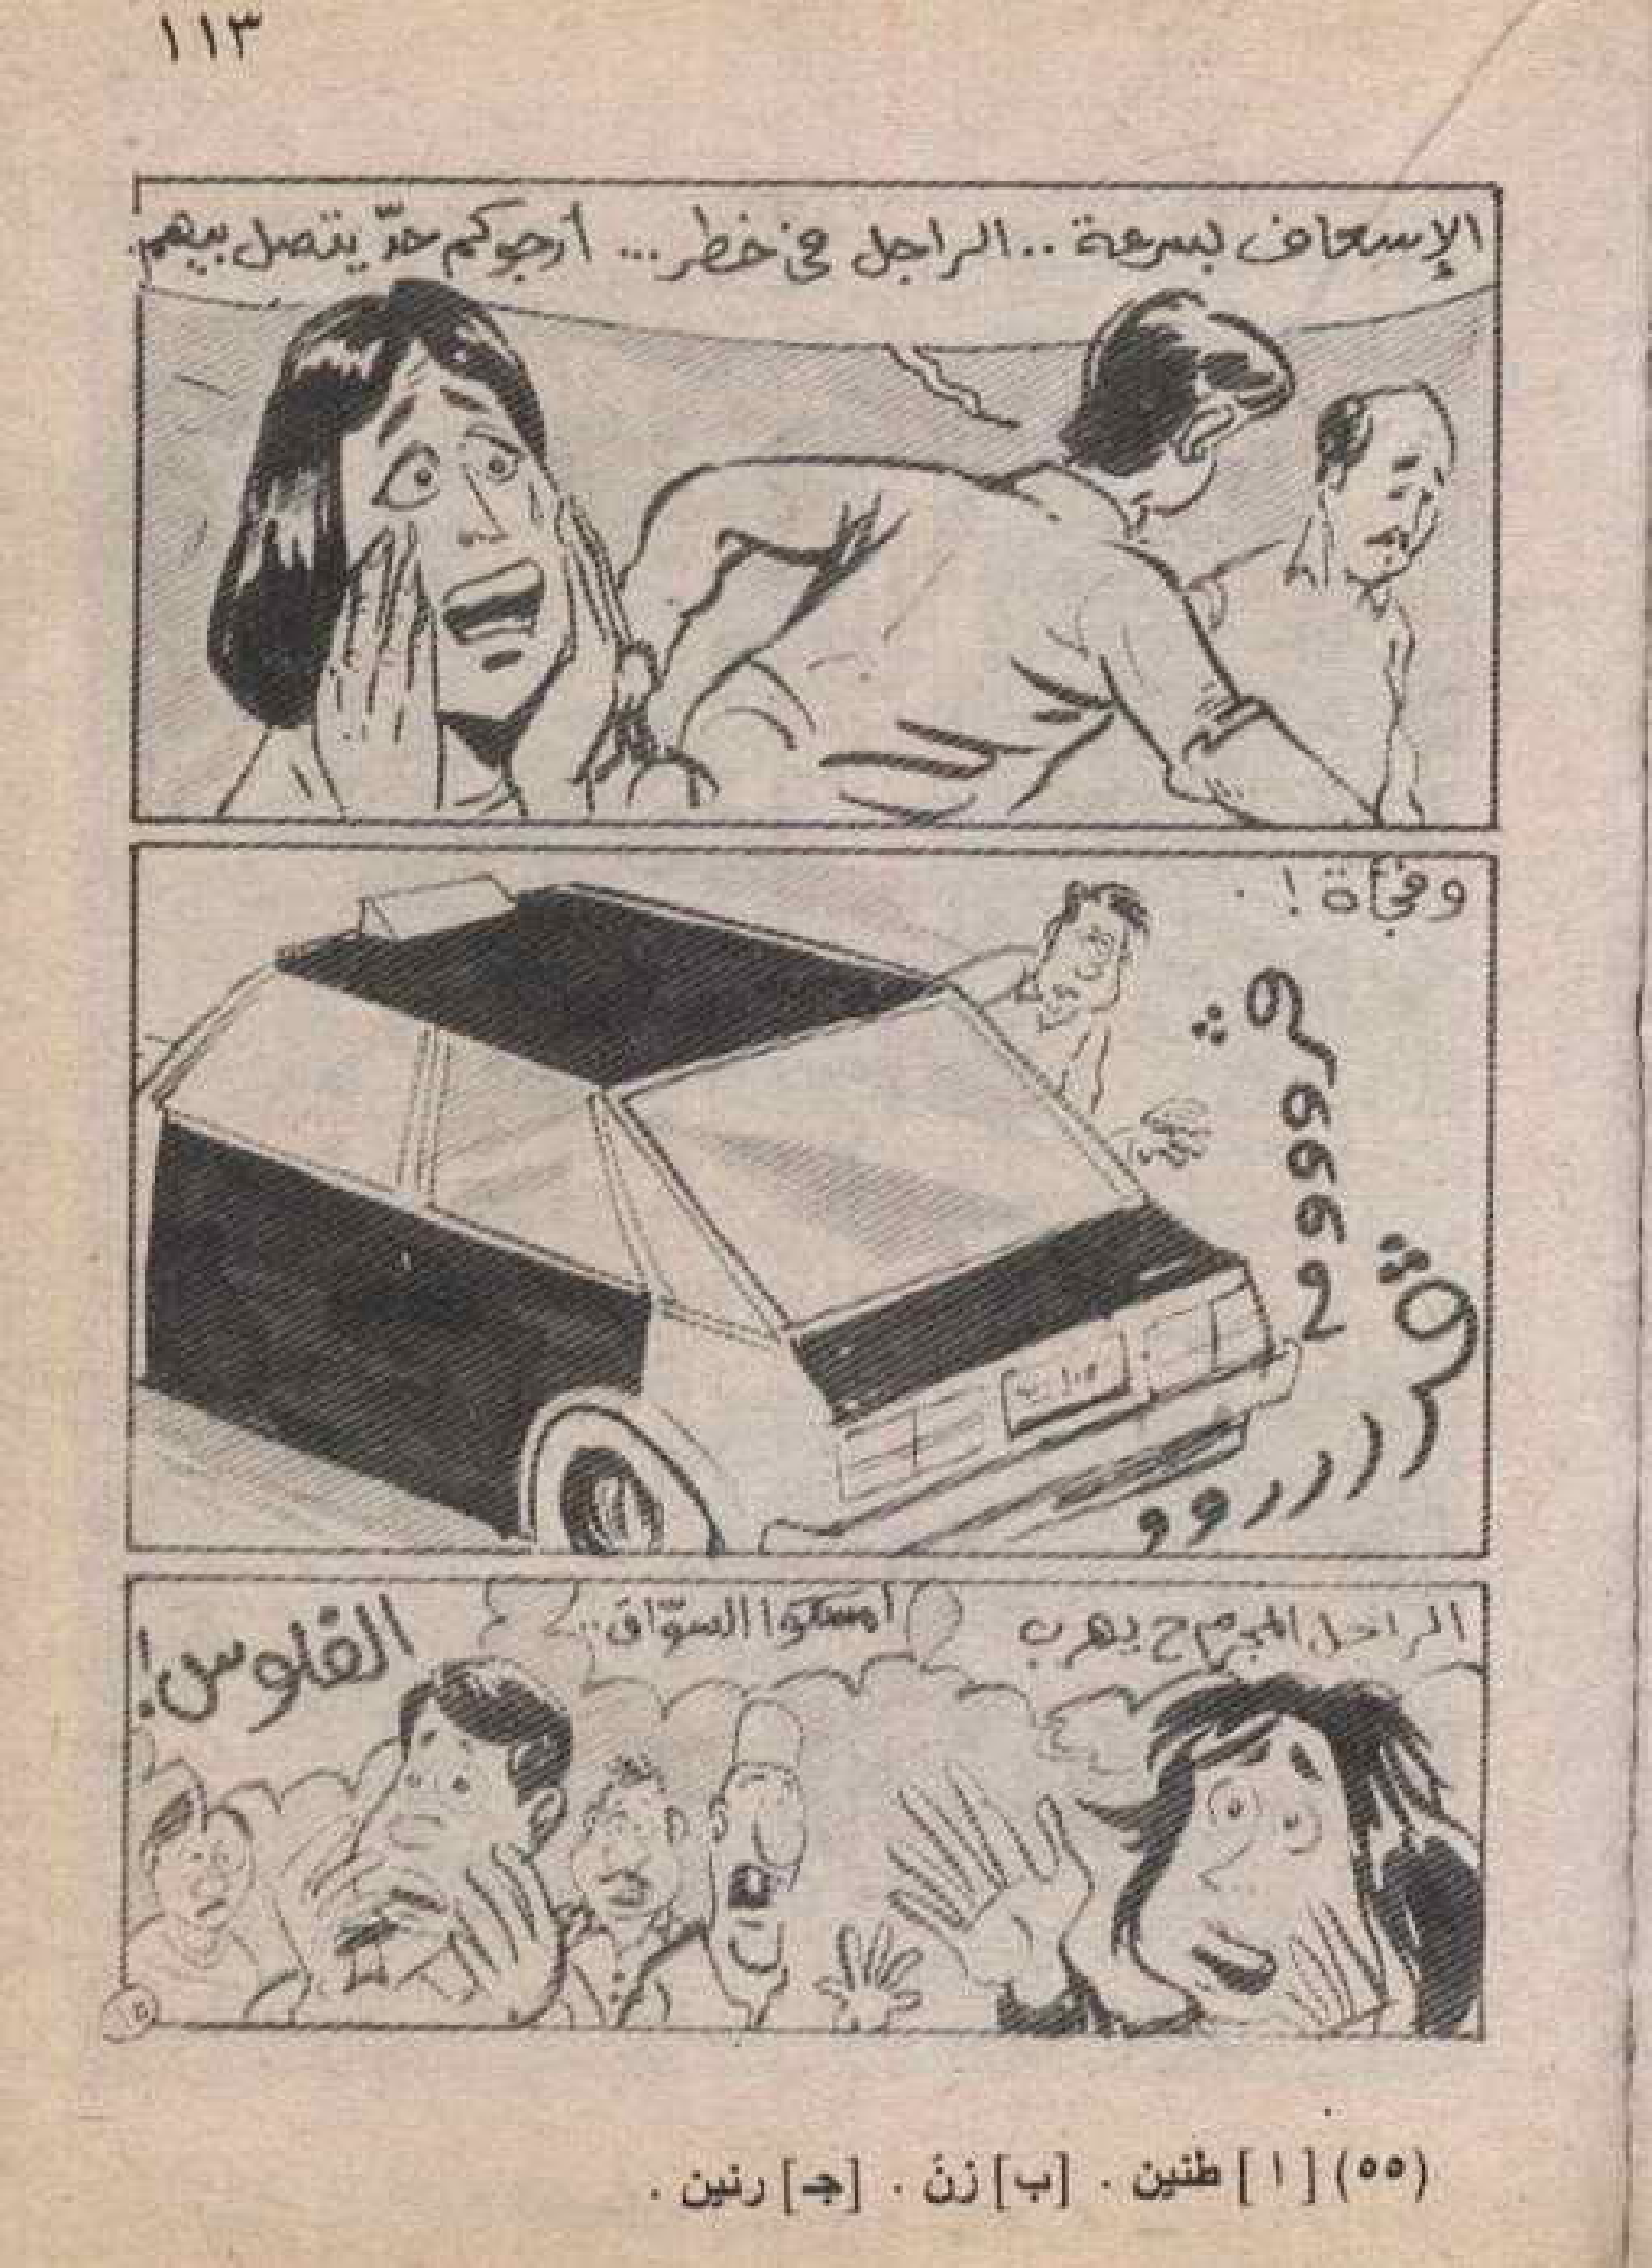 ١١٣
الإسعاف بسرعة .. الراجل في خطر ... أرجوكم حدّ يتصل بيهم.
وفجأة !
الراجل المجرم ح يهرب
امسكوا السوّاق ..
الفلوس!
(٥٥) [ ا ] طنين . [ب] زنَ . [جـ] رنين .